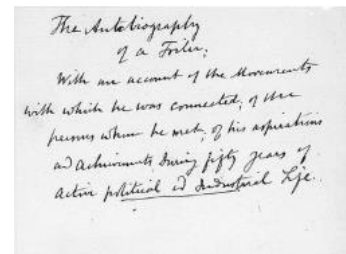 The Autobiography
of a Toiler;
With an account of the Movements
with which he was connected; of the
persons whom he met, of his aspirations
and achievements during fifty years of
active political and Industrial Life.